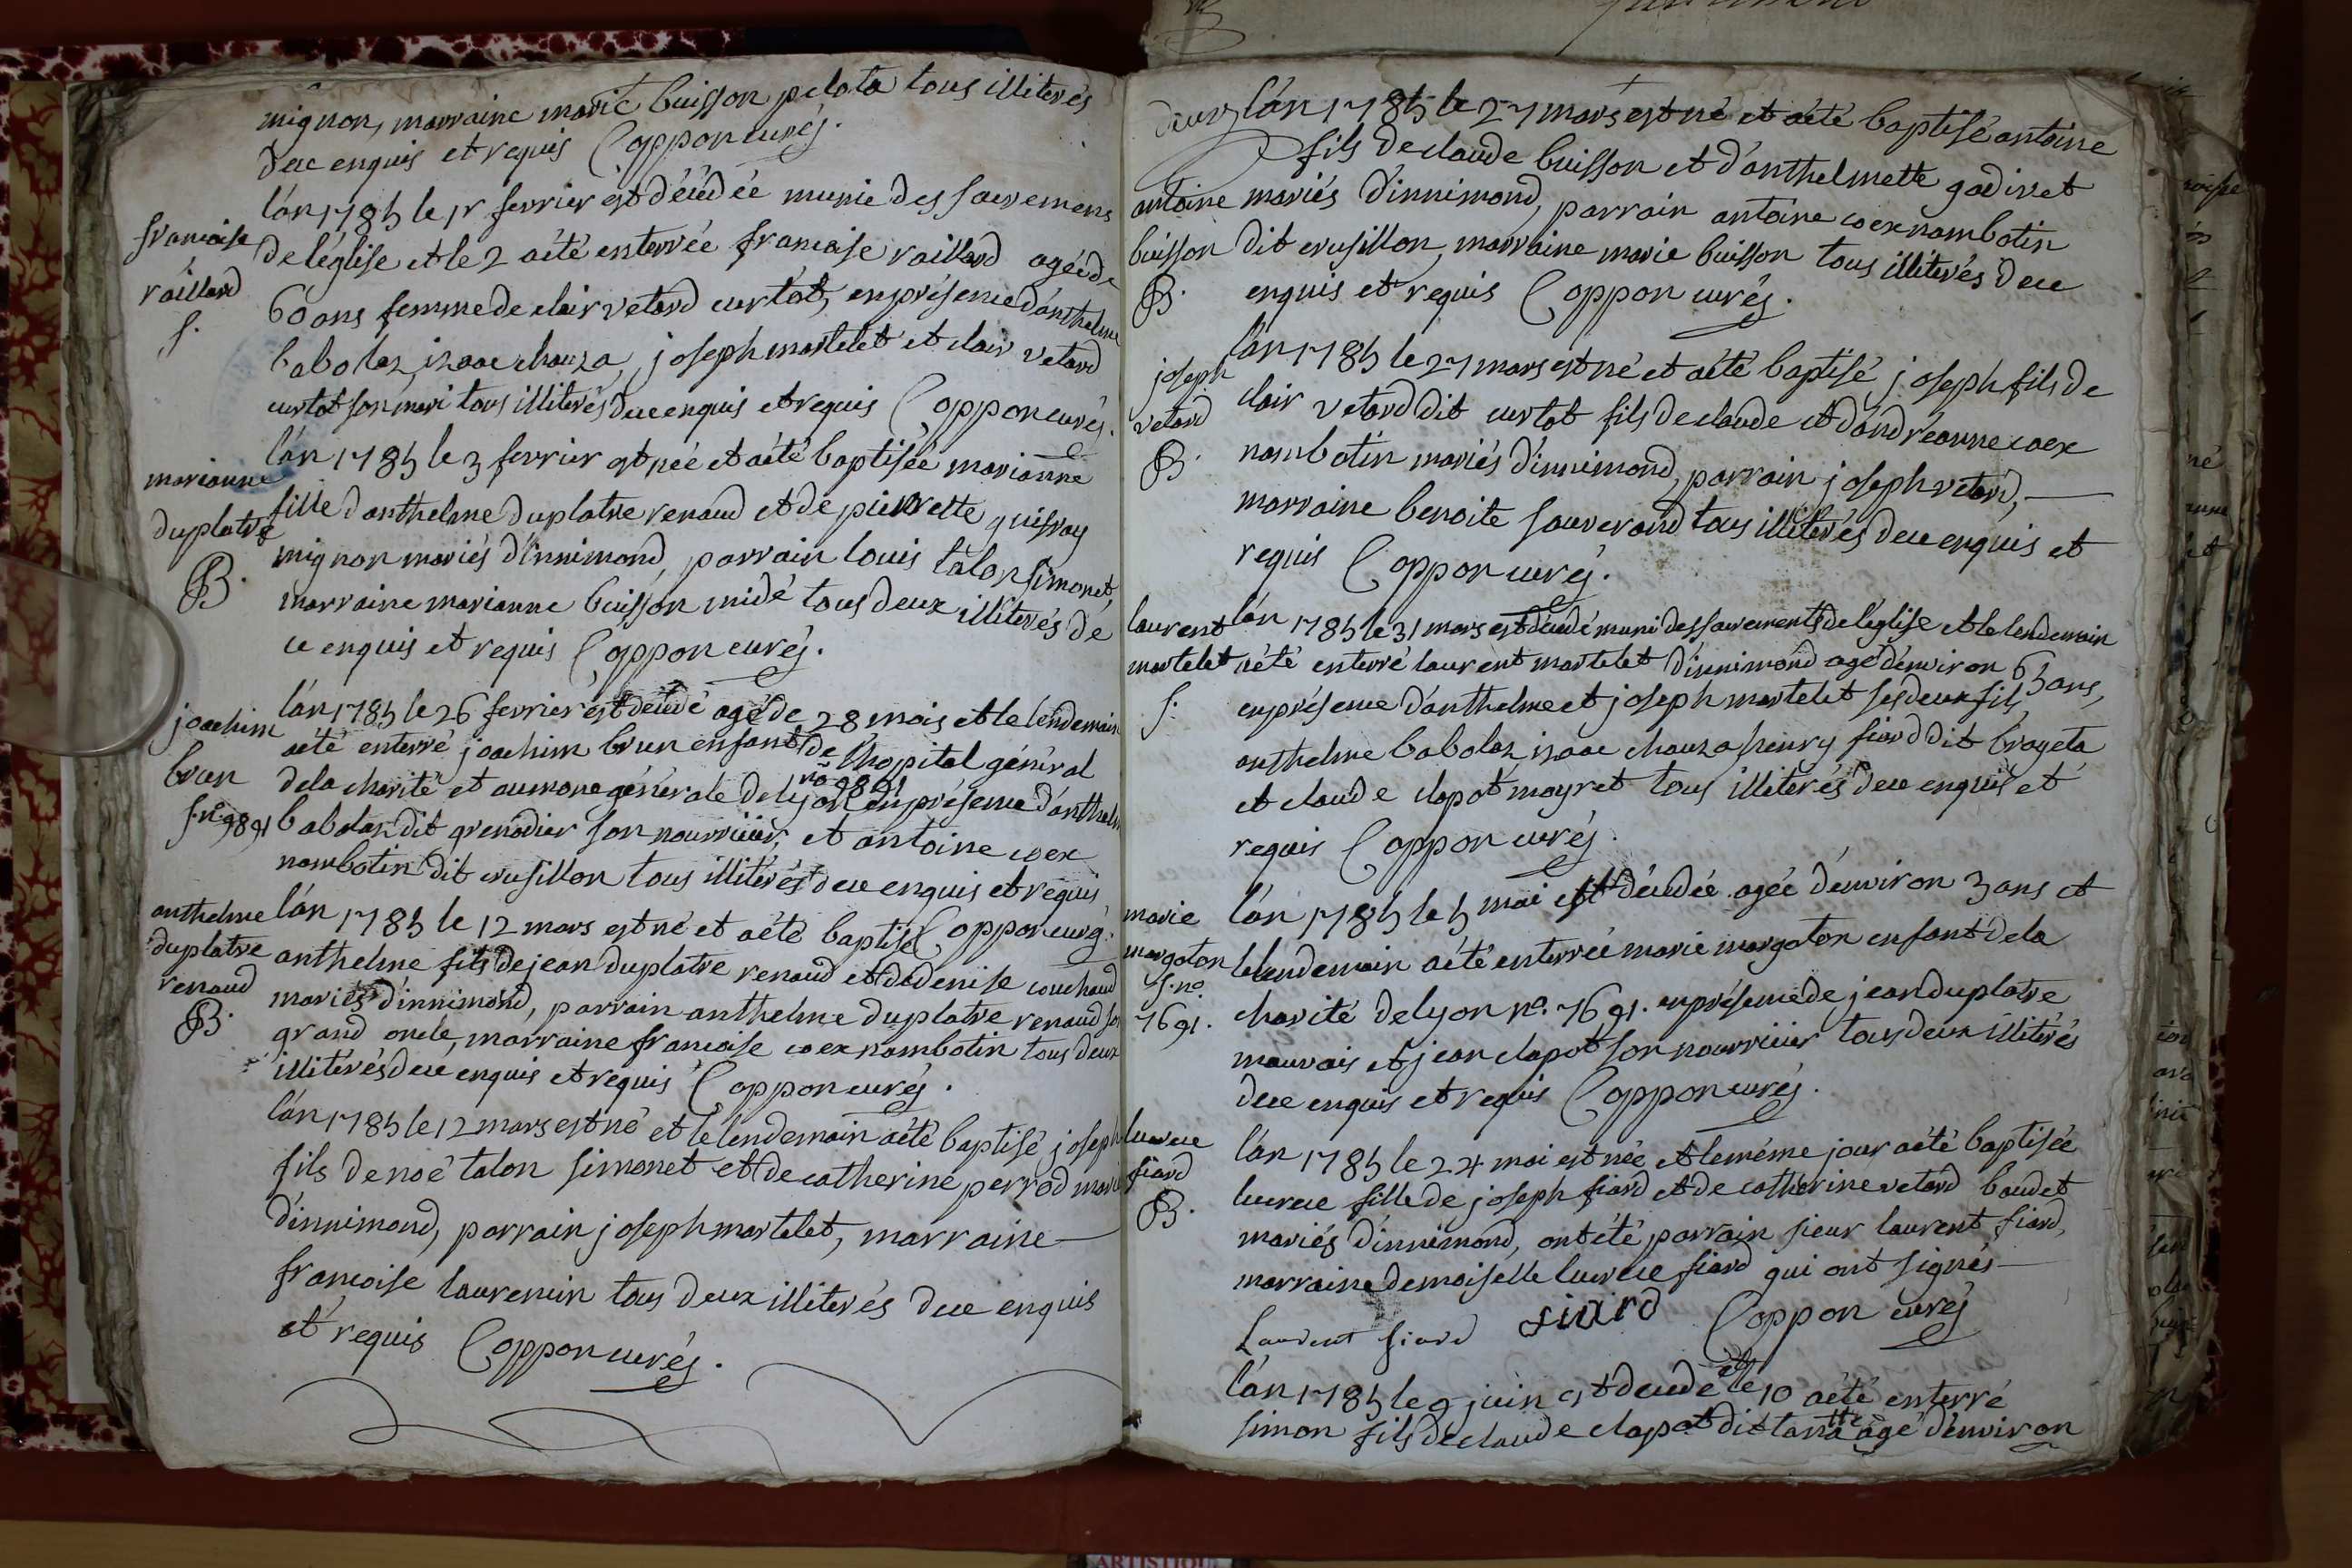 mignon, marraine marie buisson pelata tous illiterés
dece enquis et requis Coppon curé.
françoise
raillard
s.
l'an 1785 le 1r fevrier est décédée munie des sacremens
de l'église et le 2 a été enterrée francoise raillard agée de
60 ans femme de clair vetard curtat, en présence d'anthelme
babolaz, isaac chauza, joseph martelet et clair vetard
curtat son mari tous illiterés dece enquis et requis Coppon curé.
marianne
duplatre
B.
l'an 1785 le 3 fevrier est née et a été baptisée marianne
fille d'anthelme duplatre renaud et de pierrette guifray
mignon mariés d'innimond, parrain louis talon simonet,
marraine marianne buisson midé tous deux illiterés de
ce enquis et requis Coppon curé.
joachim
brun
s. n°. 9891
l'an 1785 le 26 fevrier est décédé agé de 28 mois et le lendemain
a été enterré joachim brun enfant de l'hopital général
de la charité et aumone générale de lyon n° 9891 en présence d'anthelm
babolaz dit grenadier son nourricier, et antoine coex
nambotin dit crusillon tous illiterés dece enquis et requis
Coppon curé.
anthelme
duplatre
renaud
B.
l'an 1785 le 12 mars est né et a été baptisé
anthelme fils de jean duplatre renaud et de denise couchaud
mariés d'innimond, parrain anthelme duplatre renaud son
grand oncle, marraine francoise coex nambotin tous deux
illiterés dece enquis et requis Coppon curé.
l'an 1785 le 12 mars est né et le lendemain a été baptisé joseph
fils de noé talon simonet et de catherine perrod mariés
d'innimond, parrain joseph martelet, marraine
francoise laurencin tous deux illiterés dece enquis
et requis Coppon curé.
antoine
buisson
B.
l'an 1785 le 27 mars est né et a été baptisé antoine
fils de claude buisson et d'anthelmette godivet
mariés d'innimond, parrain antoine coex nambotin
dit crusillon, marraine marie buisson tous illiterés dece
enquis et requis Coppon curé.
joseph
vetard
B.
l'an 1785 le 27 mars est né et a été baptisé joseph fils de
clair vetard dit curtat fils de claude et d'andréanne coex
nambotin mariés d'innimond, parrain joseph vetard,
marraine benoite sauverand tous illiterés dece enquis et
requis Coppon curé.
laurent
martelet
s.
l'an 1785 le 31 mars est décédé muni des sacrements de l'église et le lendemain
a été enterré laurent martelet d'innimond agé d'environ 63 ans,
en présence d'anthelme et joseph martelet ses deux fils,
anthelme babolaz, isaac chauza henry fiard dit brageta
et claude clapot mayret tous illiterés dece enquis et
requis Coppon curé.
marie
margoton
s. no.
7691.
l'an 1785 le 5 mai est décédée agée d'environ 3 ans et
le lendemain a été enterrée marie margoton enfant de la
charité de lyon n°. 7691. en présence de jean duplatre
mauvais et jean clapot son nourricier tous deux illiterés
dece enquis et requis Coppon curé.
lucrece
fiard
B.
l'an 1785 le 24 mai est née et le méme jour a été baptisée
lucrece fille de joseph fiard et de catherine vetard baudet
mariés d'innimond, ont été parrain sieur laurent fiard,
marraine demoiselle lucrece fiard qui ont signés
Laurent fiard fiard Coppon curé
l'an 1785 le 9 juin est décédé et le 10 a été enterré
simon fils de claude clapot dit agé d'environ